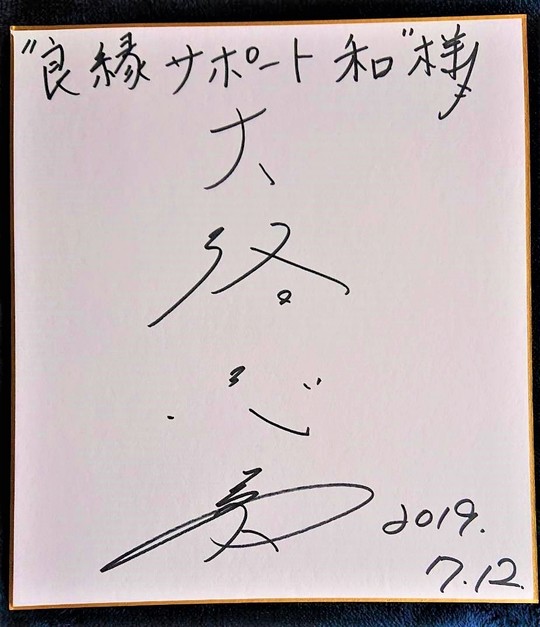 "良縁サポート和"様
大
心
2019.
7.12.